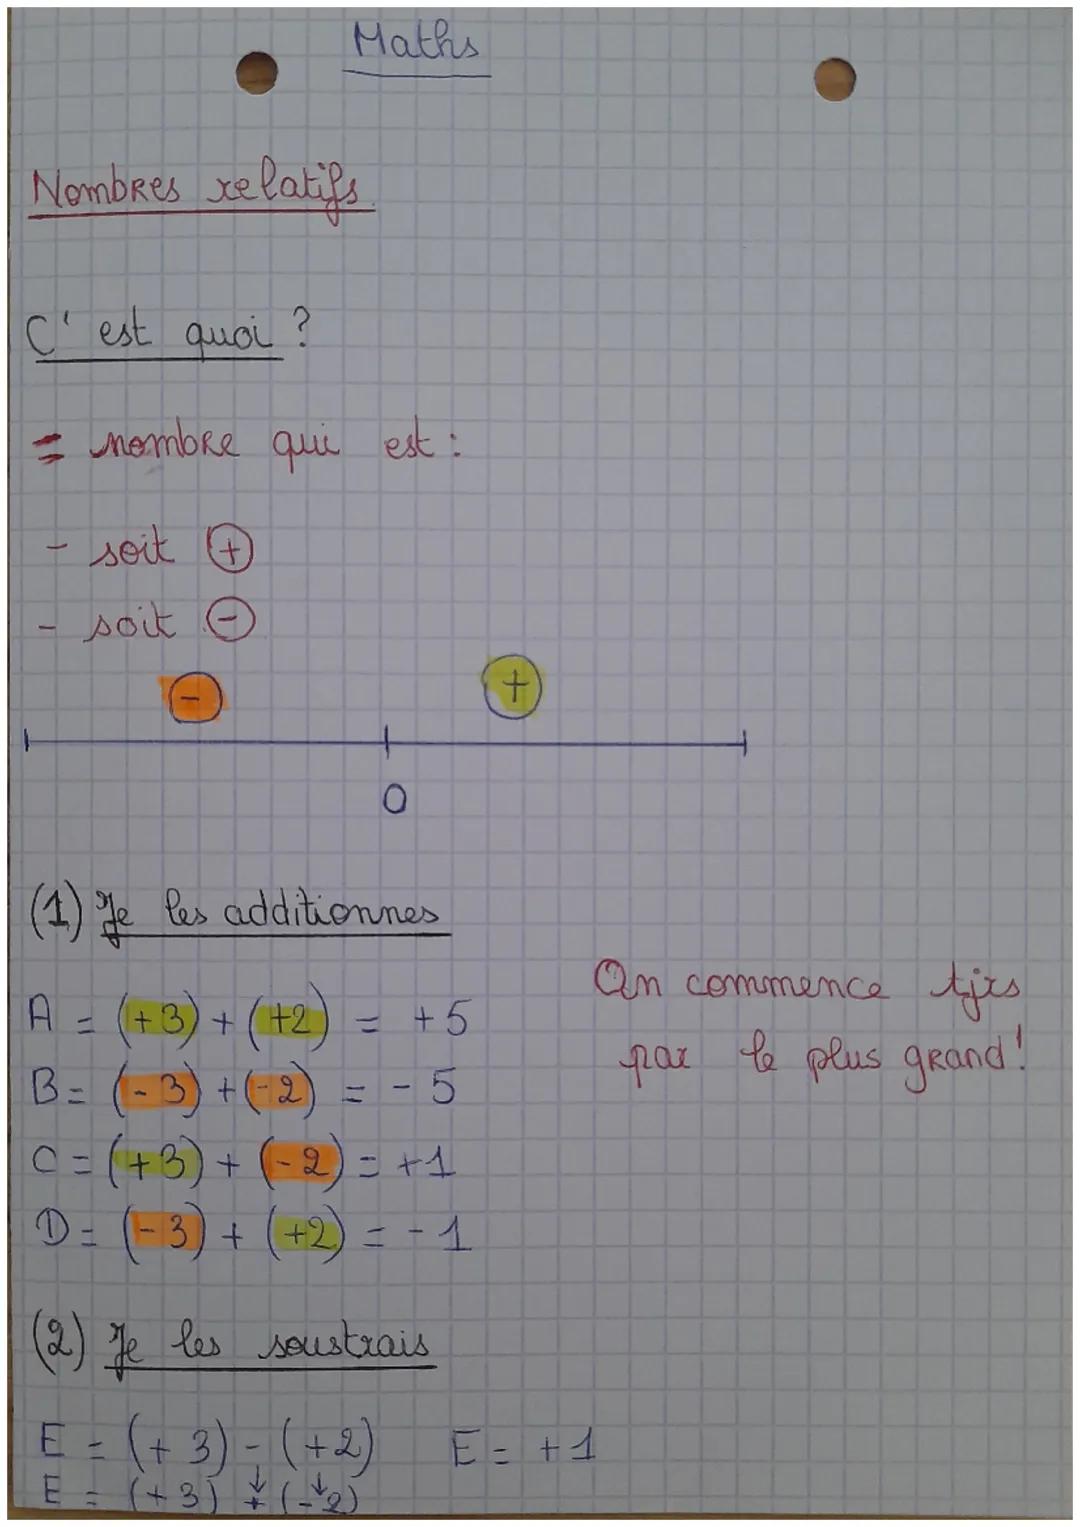 Maths
Nombres relatifs
C'est quoi ?
= nombre qui est :
- soit +
- soit -
- +
0
(1) Je les additionnes
A = (+3) + (+2) = +5
B = (-3) + (-2) = -5
C = (+3) + (-2) = +1
D = (-3) + (+2) = -1
On commence tjrs
par le plus grand !
(2) Je les soustrais
E = (+3) - (+2) E = +1
↓ ↓
E = (+3) + (-2)